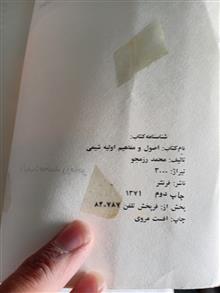 شناسنامه کتاب:
نام کتاب: اصول و مفاهیم اولیه شیمی
تالیف: محمد رزمجو
تیراژ: ۳۰۰۰
ناشر: فرنشر
چاپ دوم ۱۳۷۱
پخش از: فریخش تلفن ۸۴۰۷۸۷
چاپ: افست مروی